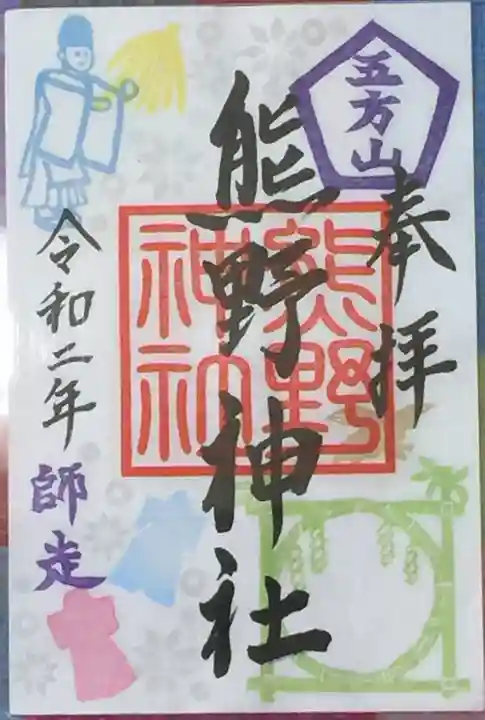 五方山
奉拝
熊野神社
熊野
神社
令和二年
師走